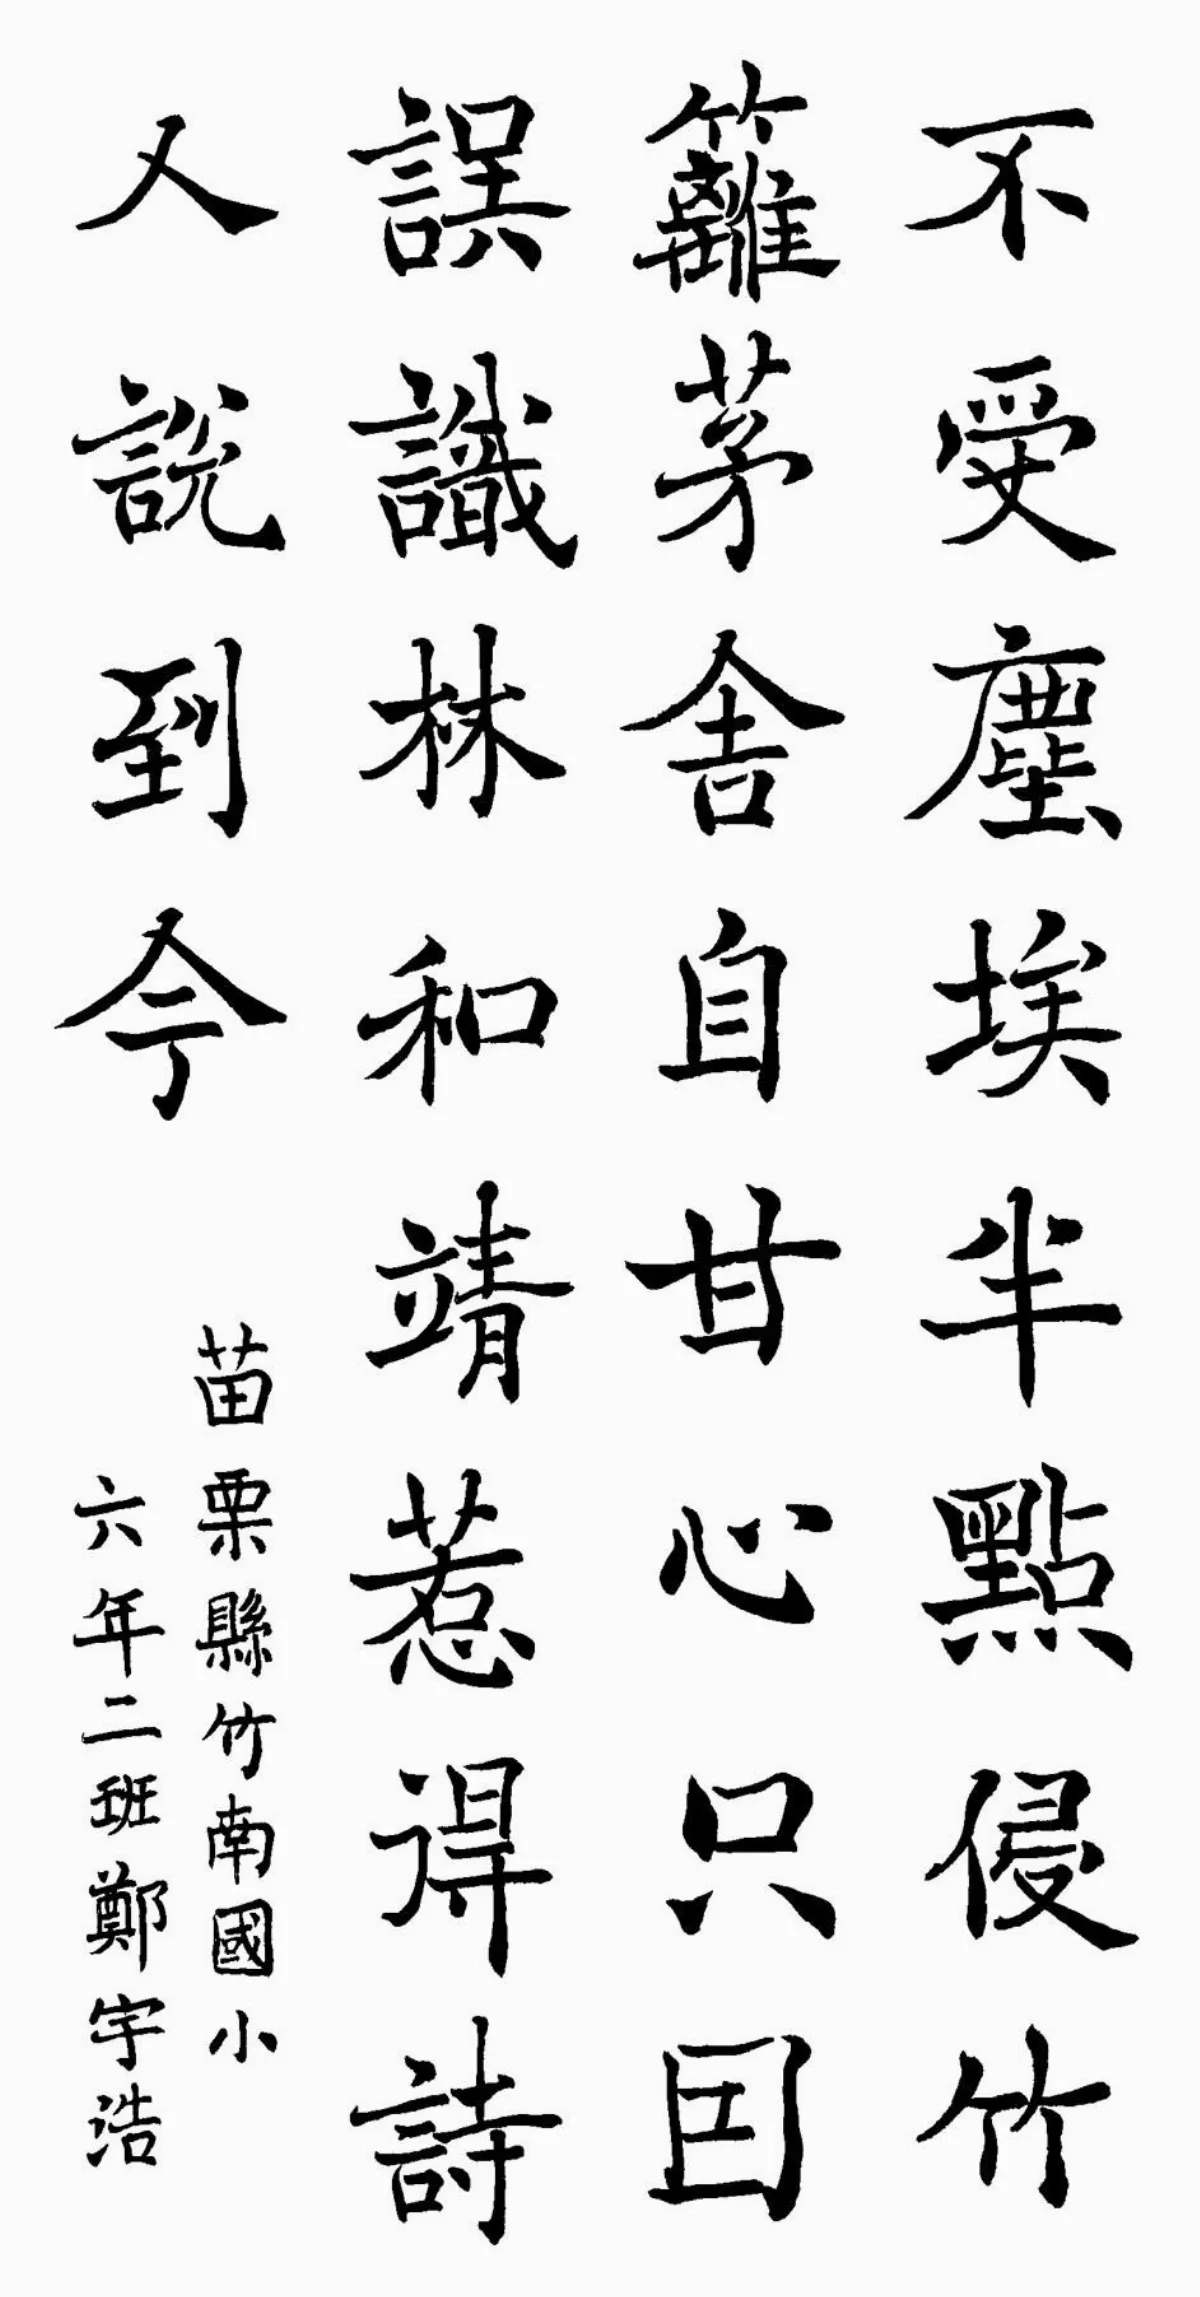 不受塵埃半點侵竹
籬茅舍自甘心只因
誤識林和靖惹得詩
人說到今
苗栗縣竹南國小
六年二班鄭宇浩